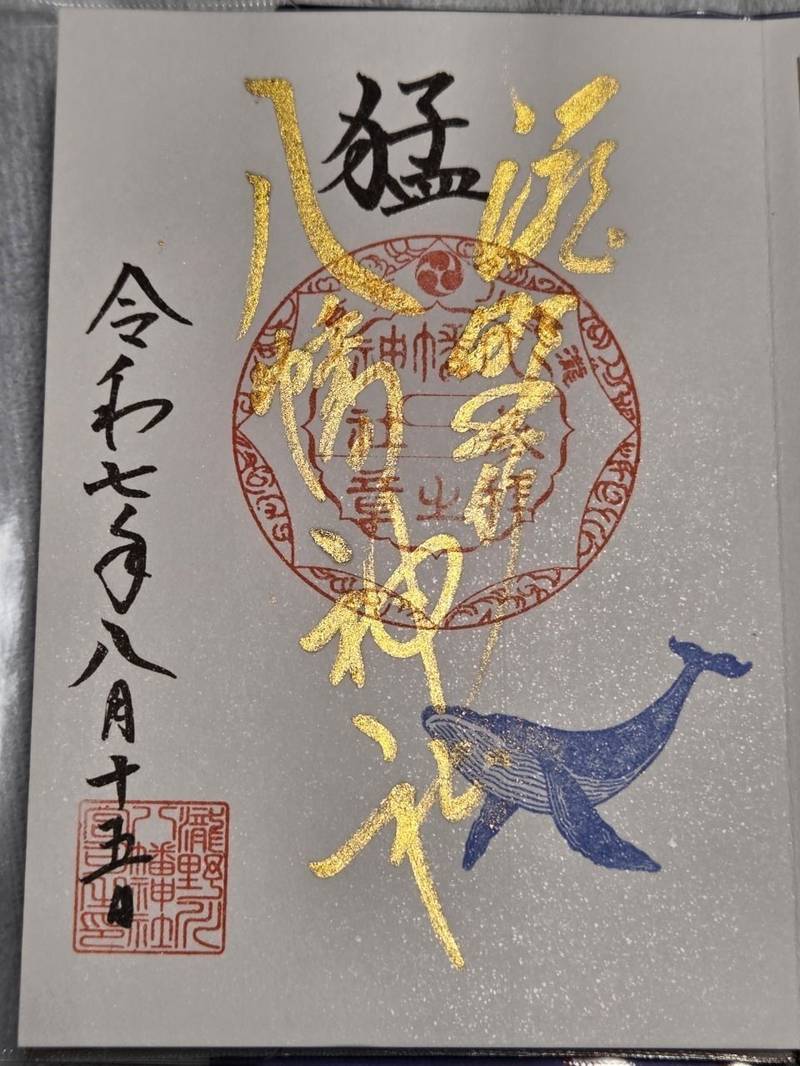 瀧野川
猛
八幡神社
八幡神社
参拝之章
令和七年八月十五日
瀧野川
八幡神社
宮司之印